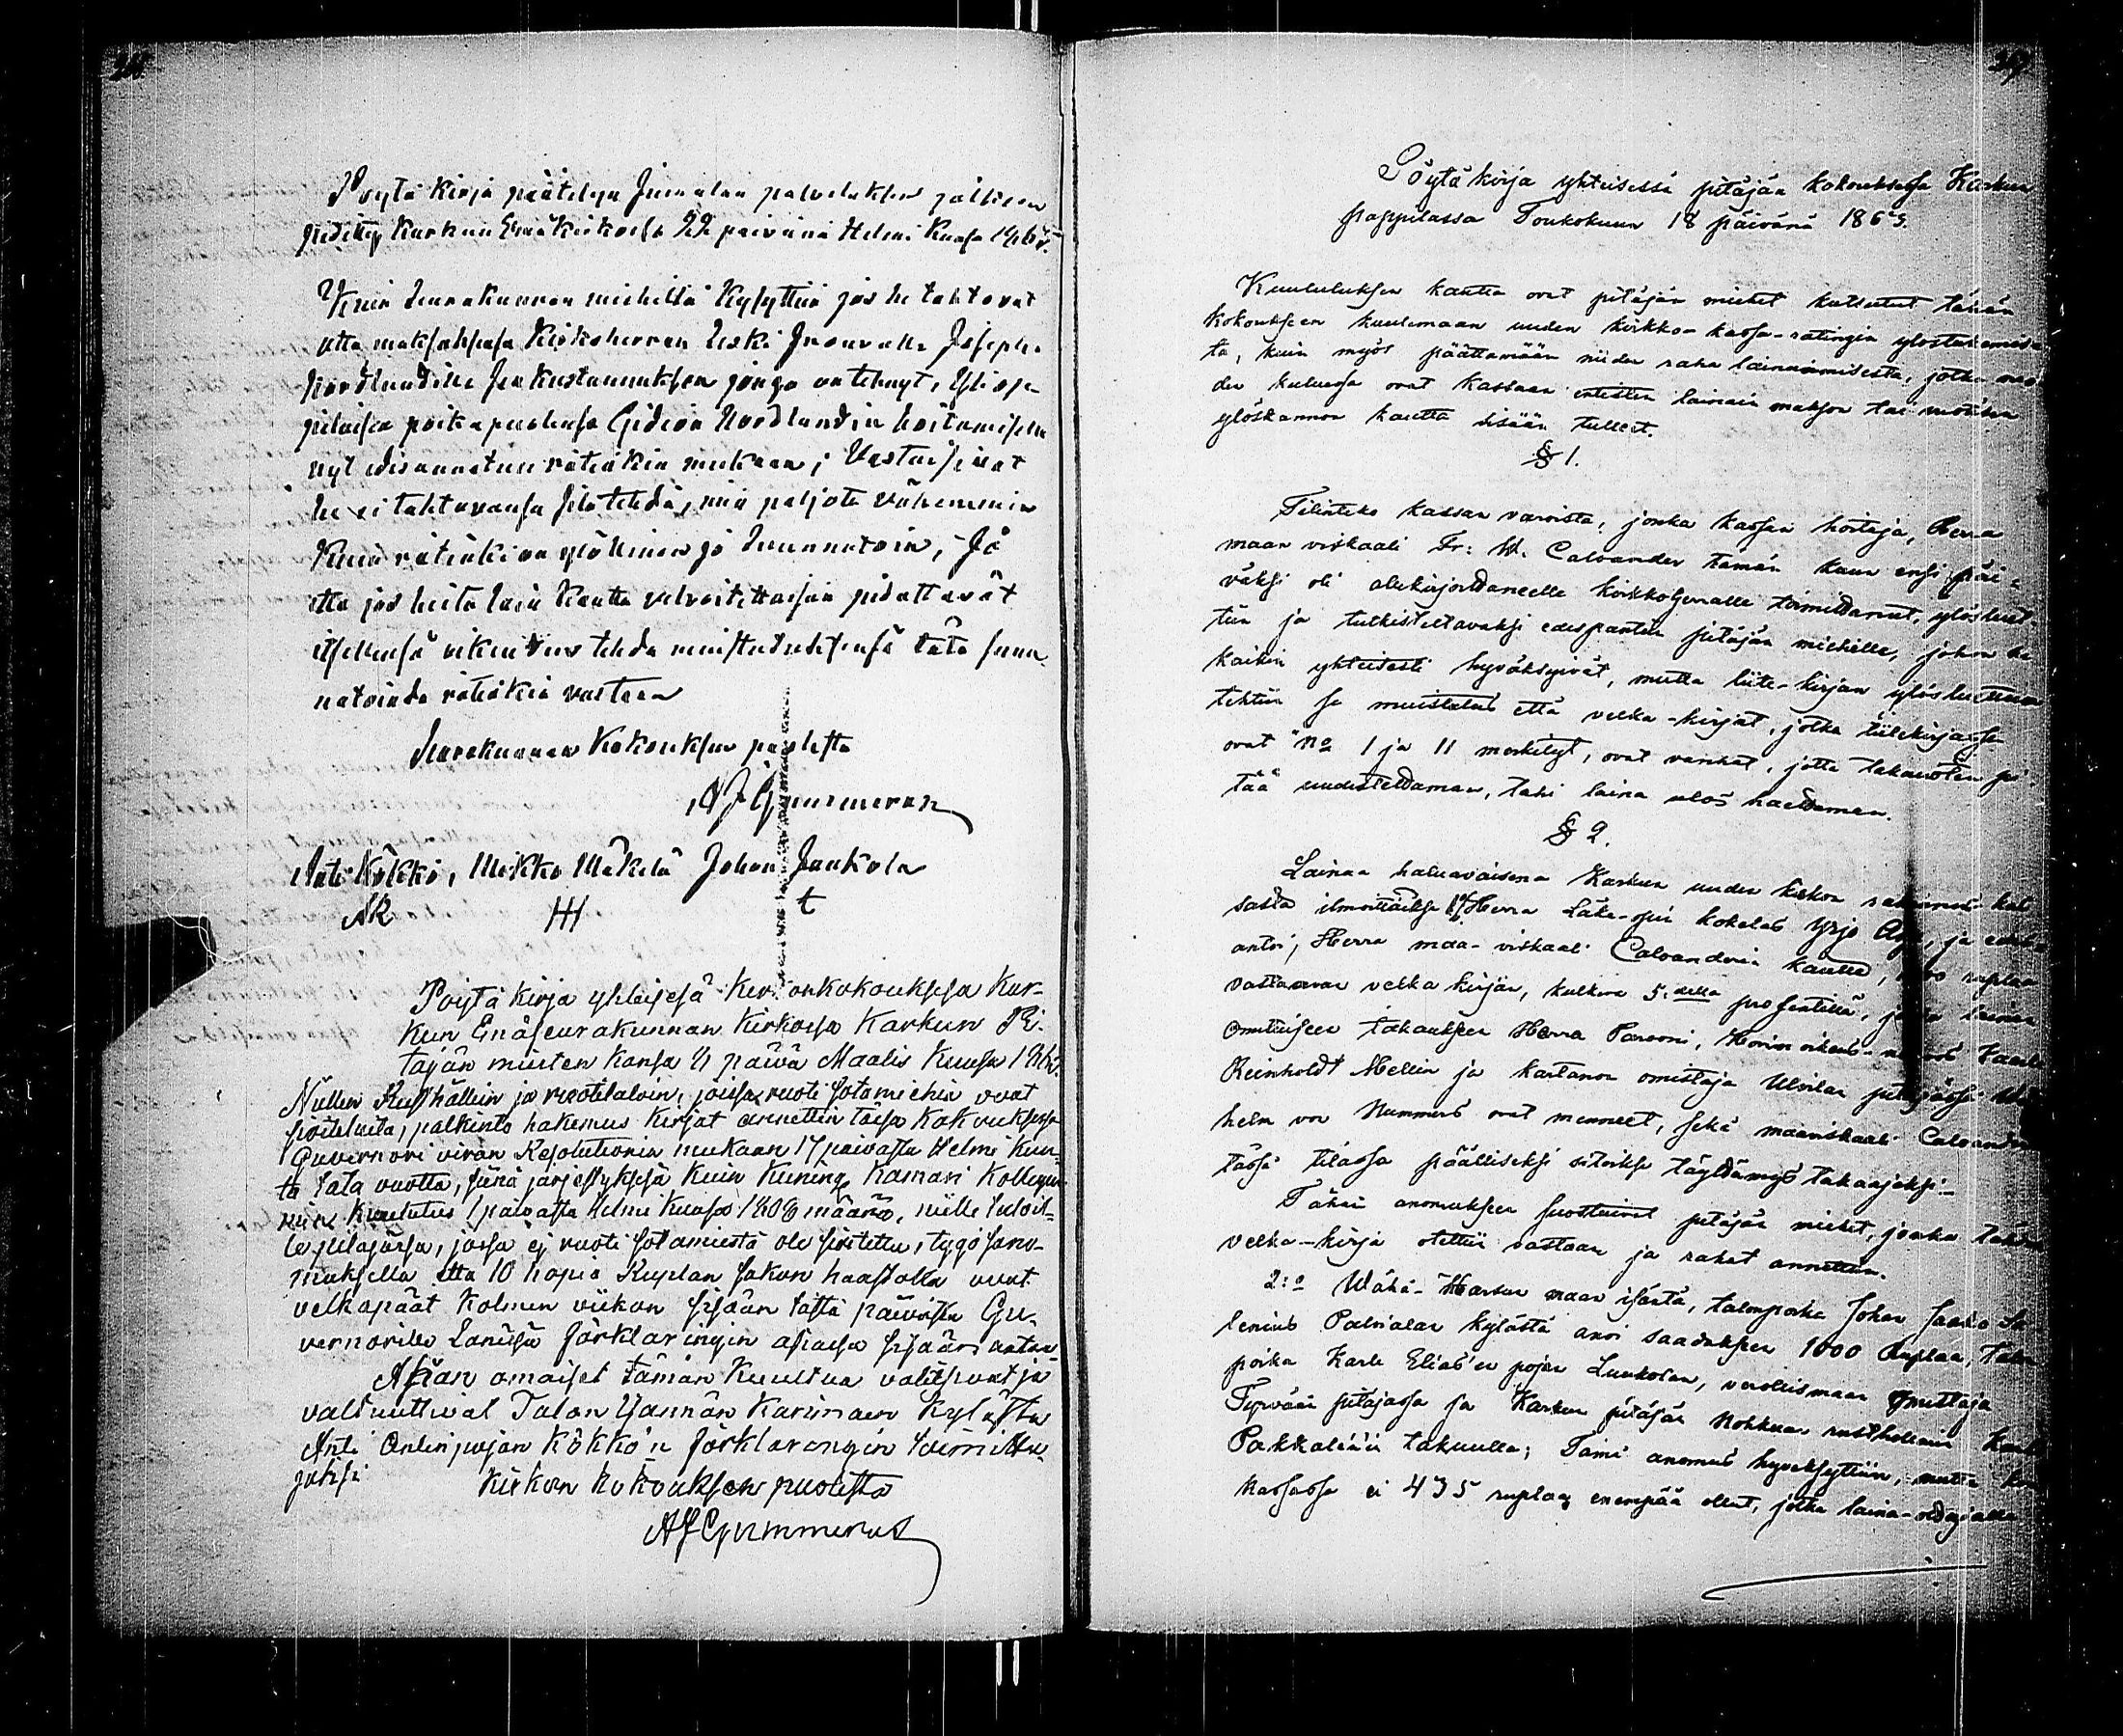 Poytä Kirja päätetyn Jumalan palveluksen jälkeen
pidetty Karkun Emäkirkossa 22 päivänä Helmi Kuussa
Kuin Seurakunnan miehiltä Kysyttiin jos he tahtovat
että maksattaa Kirkoherran Leski Frouvalle Josephi.
Nordlundille sen Kustannuksen jonga on tehnyt,
poikapuolensa Gideon Nordlundin hoitamisesta
nyt edesannetun rätinkin mukaan; Vastaisivat
he ei tahtovansa sitä tehdä, niin paljota vähemmin
Kuin rätinki on ylöllinen ja suunnatoin, ja
että jos heitä lain Kautta velvoitettaisiin pidättävät
itsellensä oikeuden tehdä muistutuksensä tätä suun
natointa rätinkiä vastaan
Seurakunnan Kokouksen puolesta
A J Gummerus
Anti Kökkö, Mikko Mäkelä Johan Junkola
AK HH t
Poytä kirja yhteisesä Kirkonkokouksesa Kar-
kun Emäseurakunnan Kirkossa Karkun Pi-
täjän miesten kansa 11 päivä Maalis Kuusa
Niillen Rusthållein ja ruotitaloin, joissa ruoti sotamiehiä ovat
palkinto hakemus kirjat annettiin täsä Kokouksessa
Guvernöri viran Resolutionin mukaan 17 päivästä Helmi Kuu-
ta tätä vuotta, siinä järjestyksesä Kuin Kuning. Kamari Kollegiu-
min Kuulutus 1 päivästä Helmi Kuussa 1808 määrää, niille taloil-
le pitäjässä, jossa ej ruoti sotamiestä ole tygö sano-
muksella että 10 hopia Ruplan sakon haastolla ovat
velkapäät Kolmen viikon sisään tästä päivästä Gu-
vernörille Länisä förklaringin asiassa sisään antaa
Asian omaiset tämän Kuultua valitsivat ja
valtuuttivat Talon Yännän Karimaen Kylästä
Anti Antinpojan Kökkö'n förklarangin toimitta-
jaksi Kirkon kokouksen puolesta
A J Gummerus
Pöytäkirja yhteisessä pitäjän kokouksessa Karkun
pappilassa Toukokuun 18 päivänä 1863.
Kuulutuksen kautta ovat pitäjän miehet kutsutut tähän
kokoukseen kuulemaan uuden kirkko-kassa-rätingin ylostekemises-
tä, kuin myös päättämään niiden raha lainaamisesta, jotka vuo-
den kuluessa ovat kassaan entisten lainain makson tai muitten
ylöskannon kautta sisään tulleet.
§ 1.
Tilinteko kassan varoista, jonka kassan hoitaja, Herra
maan viskaali Fr: W. Calvander tämän kuun ensi päi-
väksi oli allekirjoittaneelle kirkkoherralle toimittanut, ylösluet-
tiin ja tutkisteltavaksi edespantiin pitäjän miehille, johon he
kaikin yhteisesti hyväksyivät, mutta liite-kirjan ylosluettua
tehtiin se muistutus että velka-kirjat, jotka tilikirjassa
ovat No 1 ja 11 merkityt, ovat vanhat, jotta takausten pi-
tää uudistettaman, tahi laina ulos haettaman.
§ 2.
Lainan haluavaisena Karkun uuden kirkon rakennus-kas
sasta ilmoittäiksi 1:o Herra Läke-opin kokelas Yrjö, ja edes
antoi, Herra maa-viskaali Calvanderin kautta, ruplaa
vastaavan velka kirjan, kulkeva 5:della prosentilla,
Omituiseen takaukseen Herra Parooni,
Reinholdt Mellin ja kartanon omistaja Ulvilan pitäjässä Wil
helm von Nummers ovat menneet, sekä maaviskaali Calvander
tässä tilassa päälliseksi sitoiksi täyttämys takaajaksi.
Tähän anomukseen suostuivat pitäjän miehet, jonka tähden
velka-kirja otettiin vastaan ja rahat annettiin.
2:o Wähä-Harsun maan isäntä, talonpoika Johan Jaakko
lenius Palvialan kylästä anoi saadakseen 1000 Ruplaa, talon
poika Karle Elias'en pojan Luukolan, verollismaan omistaja
Tyrvään pitäjässä ja Karkun pitäjän Nohkuan rusthollarin Kaarle
Pakkalinin takuulla; Tämä anomus hyväksyttiin, mutta koska
kassassa ei 435 ruplaa enempää ollut, jotka laina-ottajalle